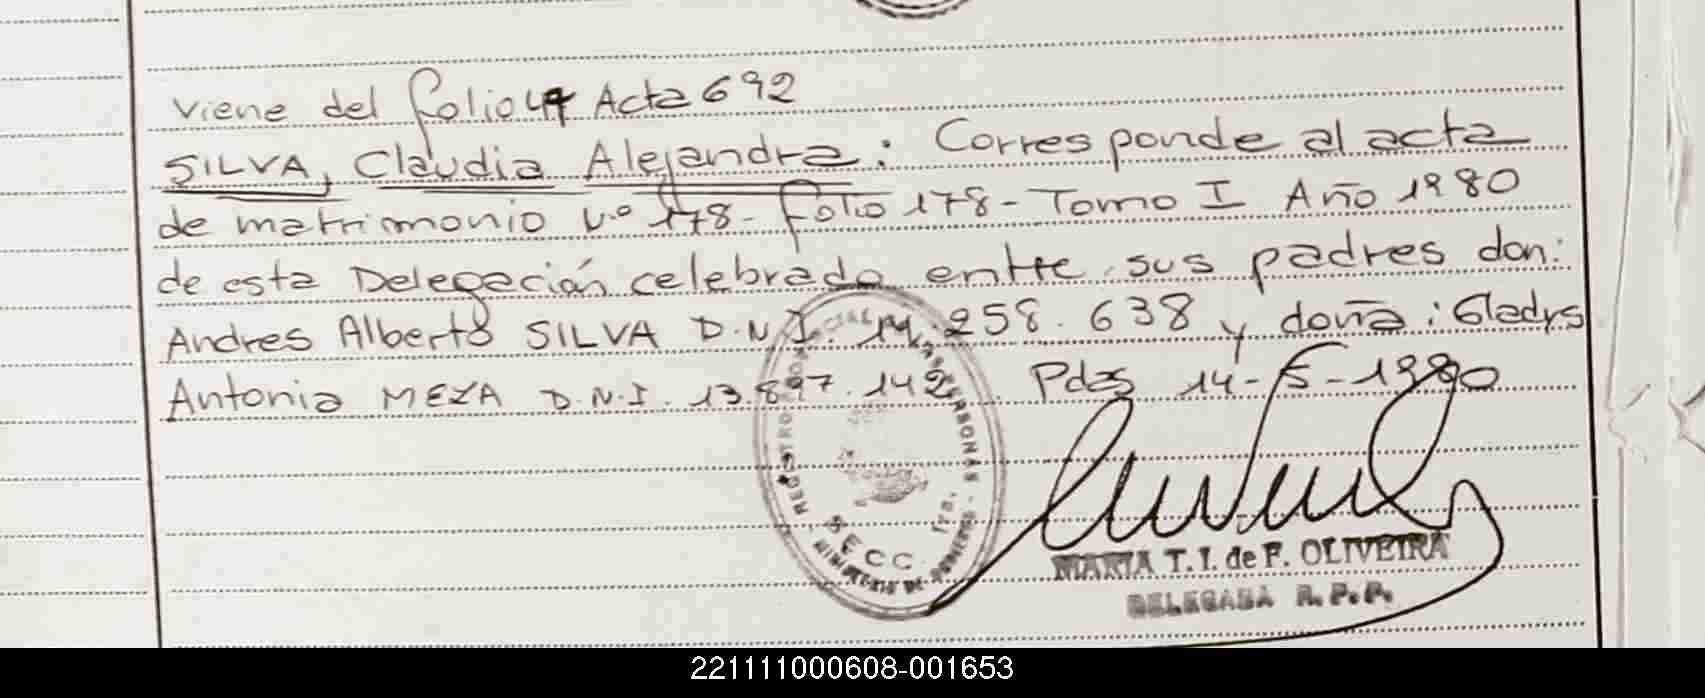 viene del folio 4 Acta 692
SILVA, Claudia Alejandra: Corresponde al acta
de matrimonio Nº 178 - folio 178 - Tomo I Año 1980
de esta Delegación celebrado entre sus padres don:
Andres Alberto SILVA D.N.I. 14.258.638 y doña: Gladys
Antonia MEZA D.N.I. 13.897.142 Pdas 14-5-1980
REGISTRO PERSONAS
SECC. 1ra.
MINISTERIO DE GOBIERNO
MARIA T. I. de F. OLIVEIRA
DELEGADA R. P. P.
221111000608-001653